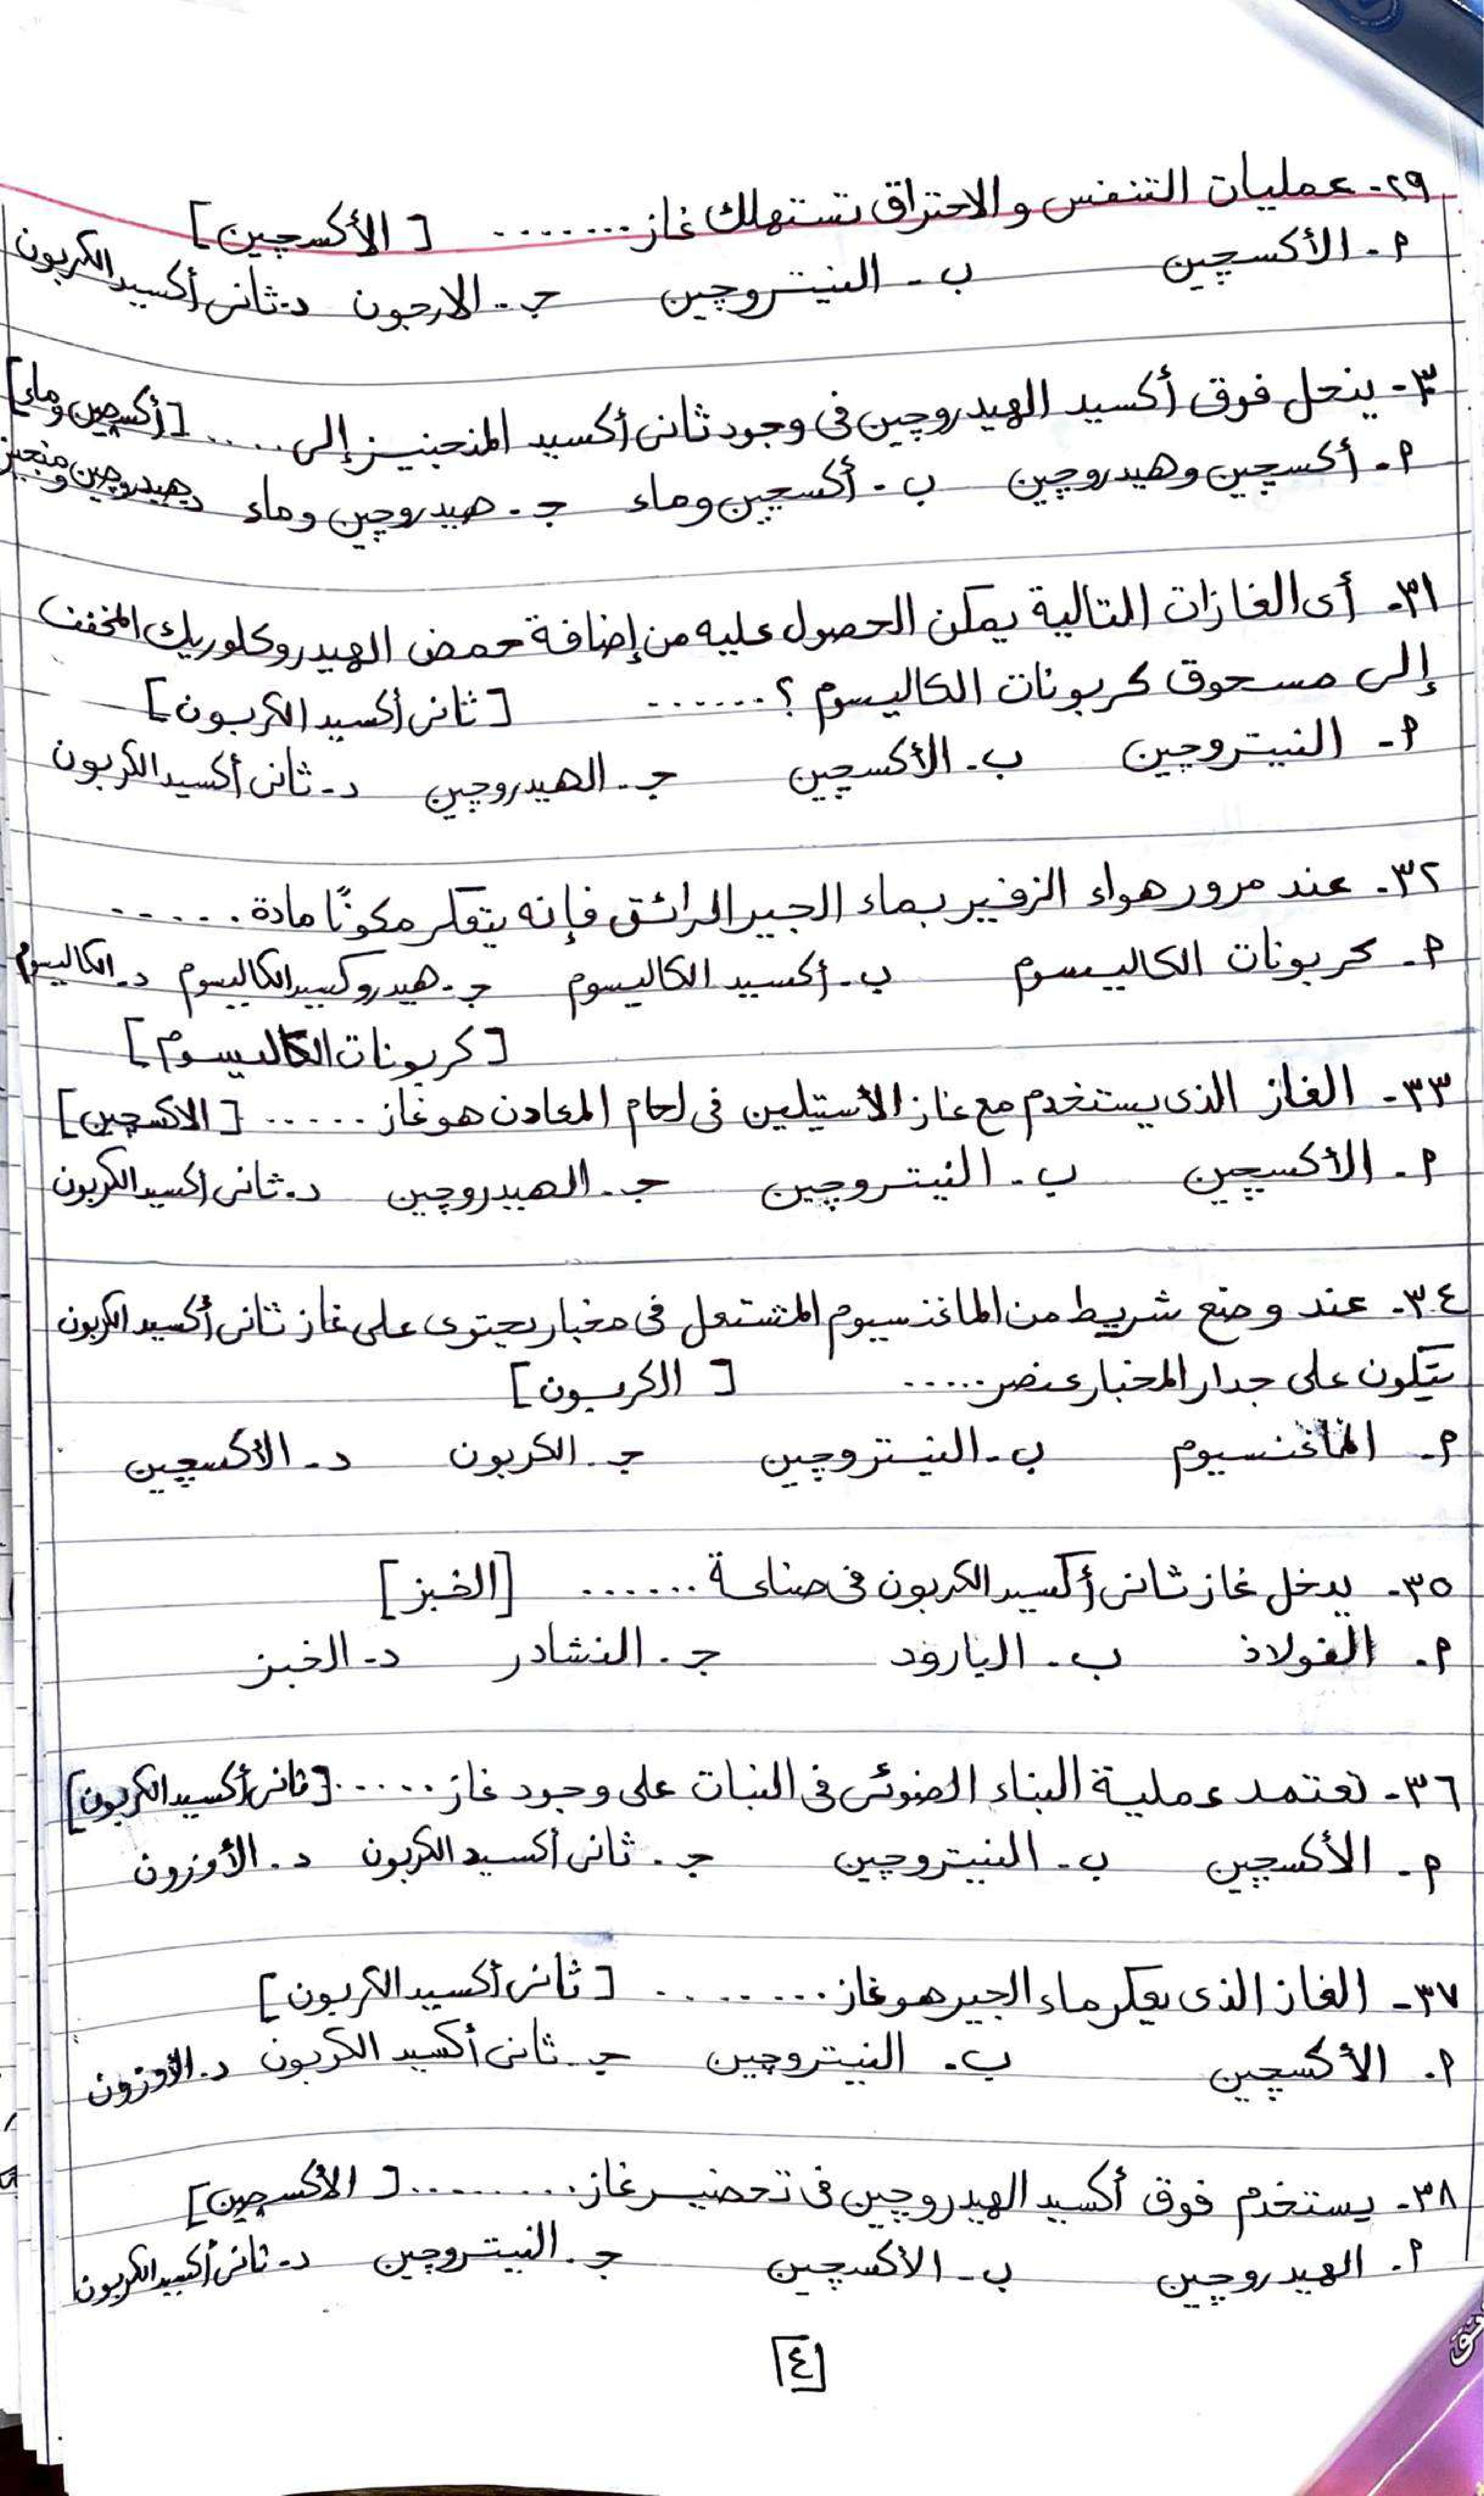 ٢٩- عمليات التنفس والاحتراق تستهلك غاز ........ [الأكسچين]
أ- الأكسچين ب- النيتروچين جـ- الارجون د- ثانى أكسيد الكربون
٣٠- ينحل فوق أكسيد الهيدروچين فى وجود ثانى أكسيد المنجنيز إلى ..... [أكسچين وماء]
أ- أكسچين وهيدروچين ب- أكسچين وماء جـ- هيدروچين وماء د- هيدروچين ومنجنيز
٣١- أى الغازات التالية يمكن الحصول عليه من إضافة حمض الهيدروكلوريك المخفف
إلى مسحوق كربونات الكاليسوم ؟ ....... [ثانى أكسيد الكربون]
أ- النيتروچين ب- الأكسچين جـ- الهيدروچين د- ثانى أكسيد الكربون
٣٢- عند مرور هواء الزفير بماء الجير الرائق فإنه يتعكر مكونًا مادة ......
أ- كربونات الكاليسوم ب- أكسيد الكاليسوم جـ- هيدروكسيد الكاليسوم د- الكاليسوم
[كربونات الكاليسوم]
٣٣- الغاز الذى يستخدم مع غاز الأستيلين فى لحام المعادن هو غاز ...... [الاكسچين]
أ- الأكسچين ب- النيتروچين جـ- الهيدروچين د- ثانى اكسيد الكربون
٣٤- عند وضع شريط من الماغنسيوم المشتعل فى مخبار يحتوى على غاز ثانى أكسيد الكربون
يتكون على جدار المخبار عنصر ..... [الكربون]
أ- الماغنسيوم ب- النيتروچين جـ- الكربون د- الأكسچين
٣٥- يدخل غاز ثانى أكسيد الكربون فى صناعة ...... [الخبز]
أ- الفولاذ ب- البارود جـ- النشادر د- الخبز
٣٦- تعتمد عملية البناء الضوئى فى النبات على وجود غاز ...... [ثانى أكسيد الكربون]
أ- الأكسچين ب- النيتروچين جـ- ثانى أكسيد الكربون د- الأوزون
٣٧- الغاز الذى يعكر ماء الجير هو غاز ........ [ثانى أكسيد الكربون]
أ- الأكسچين ب- النيتروچين جـ- ثانى أكسيد الكربون د- الأوزون
٣٨- يستخدم فوق أكسيد الهيدروچين فى تحضير غاز ......... [الأكسچين]
أ- الهيدروچين ب- الأكسچين جـ- النيتروچين د- ثانى أكسيد الكربون
[٤]